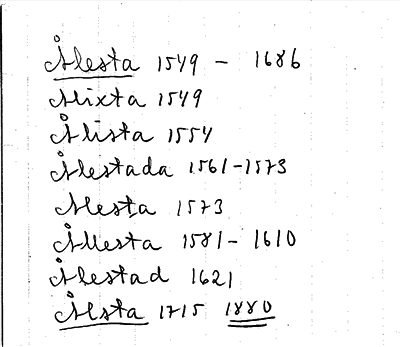 Ålesta 1549 - 1686
Alixta 1549
Ålista 1554
Ålestada 1561-1573
Alesta 1573
Ållesta 1581- 1610
Ålestad 1621
Ålsta 1715 1880